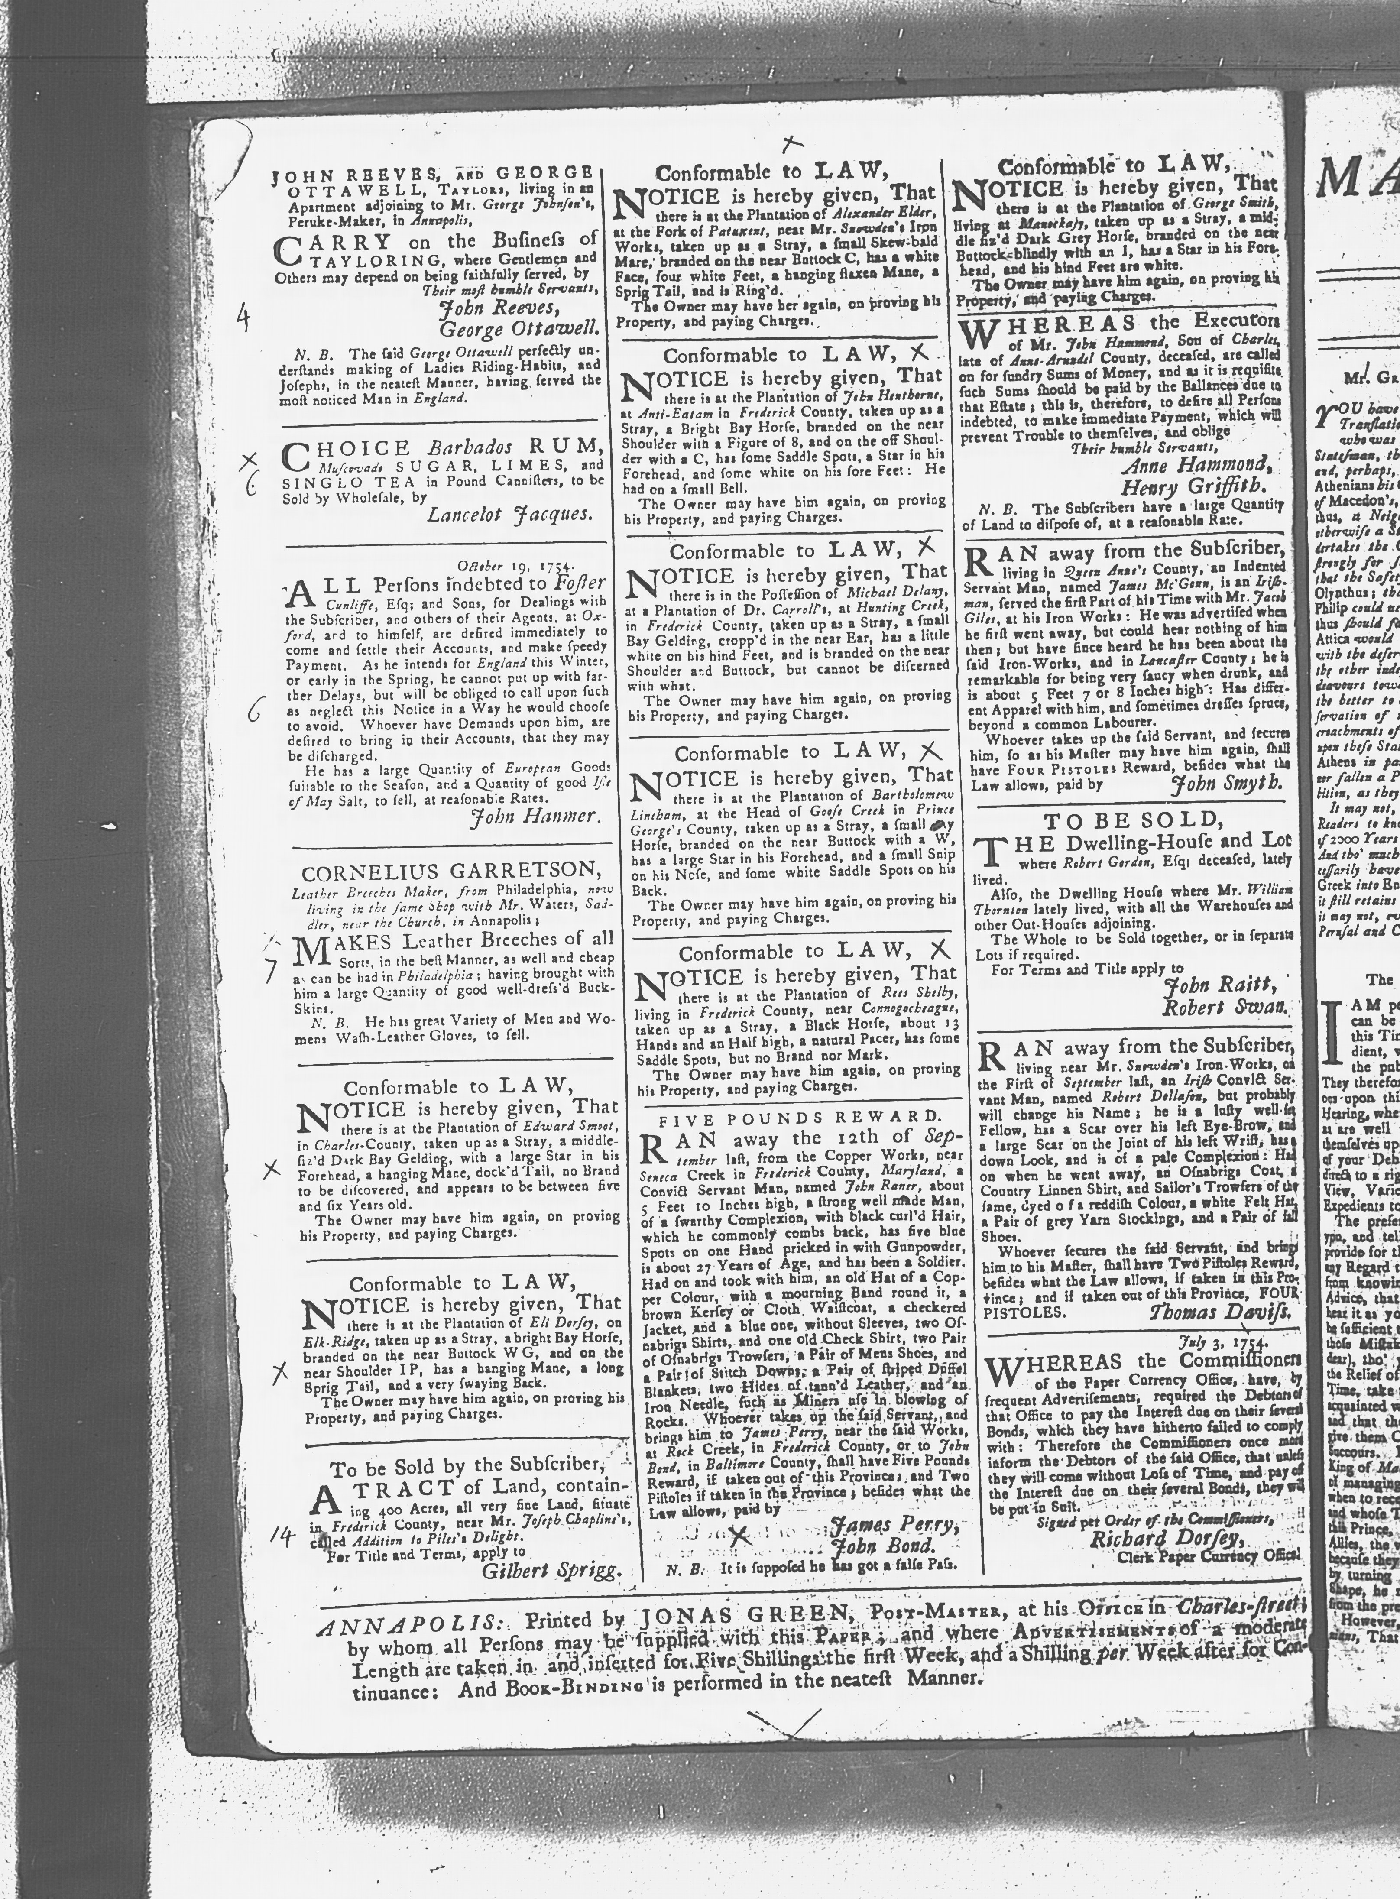 JOHN REEVES, AND GEORGE
OTTAWELL, TAYLORS, living in an
Apartment adjoining to Mr. George Johnson's,
Peruke-Maker, in Annapolis,
CARRY on the Buſineſs of
TAYLORING, where Gentlemen and
Others may depend on being faithfully ſerved, by
Their moſt humble Servants,
John Reeves,
George Ottawell.
4
N. B. The ſaid George Ottawell perfectly un-
derſtands making of Ladies Riding-Habits, and
Joſephs, in the neateſt Manner, having ſerved the
moſt noticed Man in England.
CHOICE Barbados RUM,
Muſcovado SUGAR, LIMES, and
SINGLO TEA in Pound Canniſters, to be
Sold by Wholeſale, by
Lancelot Jacques.
X
6
October 19, 1754.
ALL Perſons indebted to Foſter
Cunliffe, Eſq; and Sons, for Dealings with
the Subſcriber, and others of their Agents, at Ox-
ford, and to himſelf, are deſired immediately to
come and ſettle their Accounts, and make ſpeedy
Payment. As he intends for England this Winter,
or early in the Spring, he cannot put up with far-
ther Delays, but will be obliged to call upon ſuch
as neglect this Notice in a Way he would chooſe
to avoid. Whoever have Demands upon him, are
deſired to bring in their Accounts, that they may
be diſcharged.
6
He has a large Quantity of European Goods
ſuitable to the Seaſon, and a Quantity of good Iſle
of May Salt, to ſell, at reaſonable Rates.
John Hanmer.
CORNELIUS GARRETSON,
Leather Breeches Maker, from Philadelphia, now
living in the ſame Shop with Mr. Waters, Sad-
dler, near the Church, in Annapolis;
MAKES Leather Breeches of all
Sorts, in the beſt Manner, as well and cheap
as can be had in Philadelphia; having brought with
him a large Quantity of good well-dreſs'd Buck-
Skins.
7
N. B. He has great Variety of Men and Wo-
mens Waſh-Leather Gloves, to ſell.
Conformable to LAW,
NOTICE is hereby given, That
there is at the Plantation of Edward Smoot,
in Charles-County, taken up as a Stray, a middle-
ſiz'd Dark Bay Gelding, with a large Star in his
Forehead, a hanging Mane, dock'd Tail, no Brand
to be diſcovered, and appears to be between five
and ſix Years old.
X
The Owner may have him again, on proving
his Property, and paying Charges.
Conformable to LAW,
NOTICE is hereby given, That
there is at the Plantation of Eli Dorſey, on
Elk-Ridge, taken up as a Stray, a bright Bay Horſe,
branded on the near Buttock WG, and on the
near Shoulder IP, has a hanging Mane, a long
Sprig Tail, and a very ſwaying Back.
X
The Owner may have him again, on proving his
Property, and paying Charges.
To be Sold by the Subſcriber,
A TRACT of Land, contain-
ing 400 Acres, all very fine Land, ſituate
in Frederick County, near Mr. Joſeph Chapline's,
called Addition to Piles's Delight.
14
For Title and Terms, apply to
Gilbert Sprigg.
X
Conformable to LAW,
NOTICE is hereby given, That
there is at the Plantation of Alexander Elder,
at the Fork of Patuxent, near Mr. Snowden's Iron
Works, taken up as a Stray, a ſmall Skew-bald
Mare, branded on the near Buttock C, has a white
Face, four white Feet, a hanging flaxen Mane, a
Sprig Tail, and is Ring'd.
The Owner may have her again, on proving his
Property, and paying Charges.
Conformable to LAW, X
NOTICE is hereby given, That
there is at the Plantation of John Henthorne,
at Anti-Eatam in Frederick County, taken up as a
Stray, a Bright Bay Horſe, branded on the near
Shoulder with a Figure of 8, and on the off Shoul-
der with a C, has ſome Saddle Spots, a Star in his
Forehead, and ſome white on his fore Feet: He
had on a ſmall Bell.
The Owner may have him again, on proving
his Property, and paying Charges.
Conformable to LAW, X
NOTICE is hereby given, That
there is in the Poſſeſſion of Michael Delany,
at a Plantation of Dr. Carroll's, at Hunting Creek,
in Frederick County, taken up as a Stray, a ſmall
Bay Gelding, cropp'd in the near Ear, has a little
white on his hind Feet, and is branded on the near
Shoulder and Buttock, but cannot be diſcerned
with what.
The Owner may have him again, on proving
his Property, and paying Charges.
Conformable to LAW, X
NOTICE is hereby given, That
there is at the Plantation of Bartholomew
Lineham, at the Head of Gooſe Creek in Prince
George's County, taken up as a Stray, a ſmall
Horſe, branded on the near Buttock with a W,
has a large Star in his Forehead, and a ſmall Snip
on his Noſe, and ſome white Saddle Spots on his
Back.
The Owner may have him again, on proving his
Property, and paying Charges.
Conformable to LAW, X
NOTICE is hereby given, That
there is at the Plantation of Rees Shelby,
living in Frederick County, near Connogocheague,
taken up as a Stray, a Black Horſe, about 13
Hands and an Half high, a natural Pacer, has ſome
Saddle Spots, but no Brand nor Mark.
The Owner may have him again, on proving
his Property, and paying Charges.
FIVE POUNDS REWARD.
RAN away the 12th of Sep-
tember laſt, from the Copper Works, near
Seneca Creek in Frederick County, Maryland, a
Convict Servant Man, named John Raner, about
5 Feet 10 Inches high, a ſtrong well made Man,
of a ſwarthy Complexion, with black curl'd Hair,
which he commonly combs back, has five blue
Spots on one Hand pricked in with Gunpowder,
is about 27 Years of Age, and has been a Soldier.
Had on and took with him, an old Hat of a Cop-
per Colour, with a mourning Band round it, a
brown Kerſey or Cloth Waiſtcoat, a checkered
Jacket, and a blue one, without Sleeves, two Oſ-
nabrigs Shirts, and one old Check Shirt, two Pair
of Oſnabrigs Trowſers, a Pair of Mens Shoes, and
a Pair of Stitch Downs, a Pair of ſtriped Duffel
Blankets, two Hides of tann'd Leather, and an
Iron Needle, ſuch as Miners uſe in blowing of
Rocks. Whoever takes up the ſaid Servant, and
brings him to James Perry, near the ſaid Works,
at Rock Creek, in Frederick County, or to John
Bond, in Baltimore County, ſhall have Five Pounds
Reward, if taken out of this Province; and Two
Piſtoles if taken in the Province; beſides what the
Law allows, paid by
James Perry,
X
John Bond.
N. B. It is ſuppoſed he has got a falſe Paſs.
Conformable to LAW,
NOTICE is hereby given, That
there is at the Plantation of George Smith,
living at Manockaſy, taken up as a Stray, a mid-
dle ſiz'd Dark Grey Horſe, branded on the near
Buttock blindly with an I, has a Star in his Fore-
head, and his hind Feet are white.
The Owner may have him again, on proving his
Property, and paying Charges.
WHEREAS the Executors
of Mr. John Hammond, Son of Charles,
late of Anne-Arundel County, deceaſed, are called
on for ſundry Sums of Money, and as it is requiſite
ſuch Sums ſhould be paid by the Ballances due to
that Eſtate; this is, therefore, to deſire all Perſons
indebted, to make immediate Payment, which will
prevent Trouble to themſelves, and oblige
Their humble Servants,
Anne Hammond,
Henry Griffith.
N. B. The Subſcribers have a large Quantity
of Land to diſpoſe of, at a reaſonable Rate.
RAN away from the Subſcriber,
living in Queen Anne's County, an Indented
Servant Man, named James Mc'Genn, is an Iriſh-
man, ſerved the firſt Part of his Time with Mr. Jacob
Giles, at his Iron Works: He was advertiſed when
he firſt went away, but could hear nothing of him
then; but have ſince heard he has been about the
ſaid Iron-Works, and in Lancaſter County; he is
remarkable for being very ſaucy when drunk, and
is about 5 Feet 7 or 8 Inches high: Has differ-
ent Apparel with him, and ſometimes dreſſes ſpruce,
beyond a common Labourer.
Whoever takes up the ſaid Servant, and ſecures
him, ſo as his Maſter may have him again, ſhall
have FOUR PISTOLES Reward, beſides what the
Law allows, paid by John Smyth.
TO BE SOLD,
THE Dwelling-Houſe and Lot
where Robert Gordon, Eſq; deceaſed, lately
lived.
Alſo, the Dwelling Houſe where Mr. William
Thornton lately lived, with all the Warehouſes and
other Out-Houſes adjoining.
The Whole to be Sold together, or in ſeparate
Lots if required.
For Terms and Title apply to
John Raitt,
Robert Swan.
RAN away from the Subſcriber,
living near Mr. Snowden's Iron-Works, on
the Firſt of September laſt, an Iriſh Convict Ser-
vant Man, named Robert Dollaſon, but probably
will change his Name; he is a luſty well-ſet
Fellow, has a Scar over his left Eye-Brow, and
a large Scar on the Joint of his left Wriſt, has a
down Look, and is of a pale Complexion: Had
on when he went away, an Oſnabrigs Coat, a
Country Linnen Shirt, and Sailor's Trowſers of the
ſame, dyed of a reddiſh Colour, a white Felt Hat,
a Pair of grey Yarn Stockings, and a Pair of fall
Shoes.
Whoever ſecures the ſaid Servant, and brings
him to his Maſter, ſhall have Two Piſtoles Reward,
beſides what the Law allows, if taken in this Pro-
vince; and if taken out of this Province, FOUR
PISTOLES. Thomas Daviſs.
July 3, 1754.
WHEREAS the Commiſſioners
of the Paper Currency Office, have, by
frequent Advertiſements, required the Debtors of
that Office to pay the Intereſt due on their ſeveral
Bonds, which they have hitherto failed to comply
with: Therefore the Commiſſioners once more
inform the Debtors of the ſaid Office, that unleſs
they will come without Loſs of Time, and pay off
the Intereſt due on their ſeveral Bonds, they will
be put in Suit.
Signed per Order of the Commiſſioners,
Richard Dorſey,
Clerk Paper Currency Office.
ANNAPOLIS: Printed by JONAS GREEN, POST-MASTER, at his OFFICE in Charles-ſtreet;
by whom all Perſons may be ſupplied with this PAPER; and where ADVERTISEMENTS of a moderate
Length are taken in and inſerted for Five Shillings the firſt Week, and a Shilling per Week after for Con-
tinuance: And BOOK-BINDING is performed in the neateſt Manner.
MA